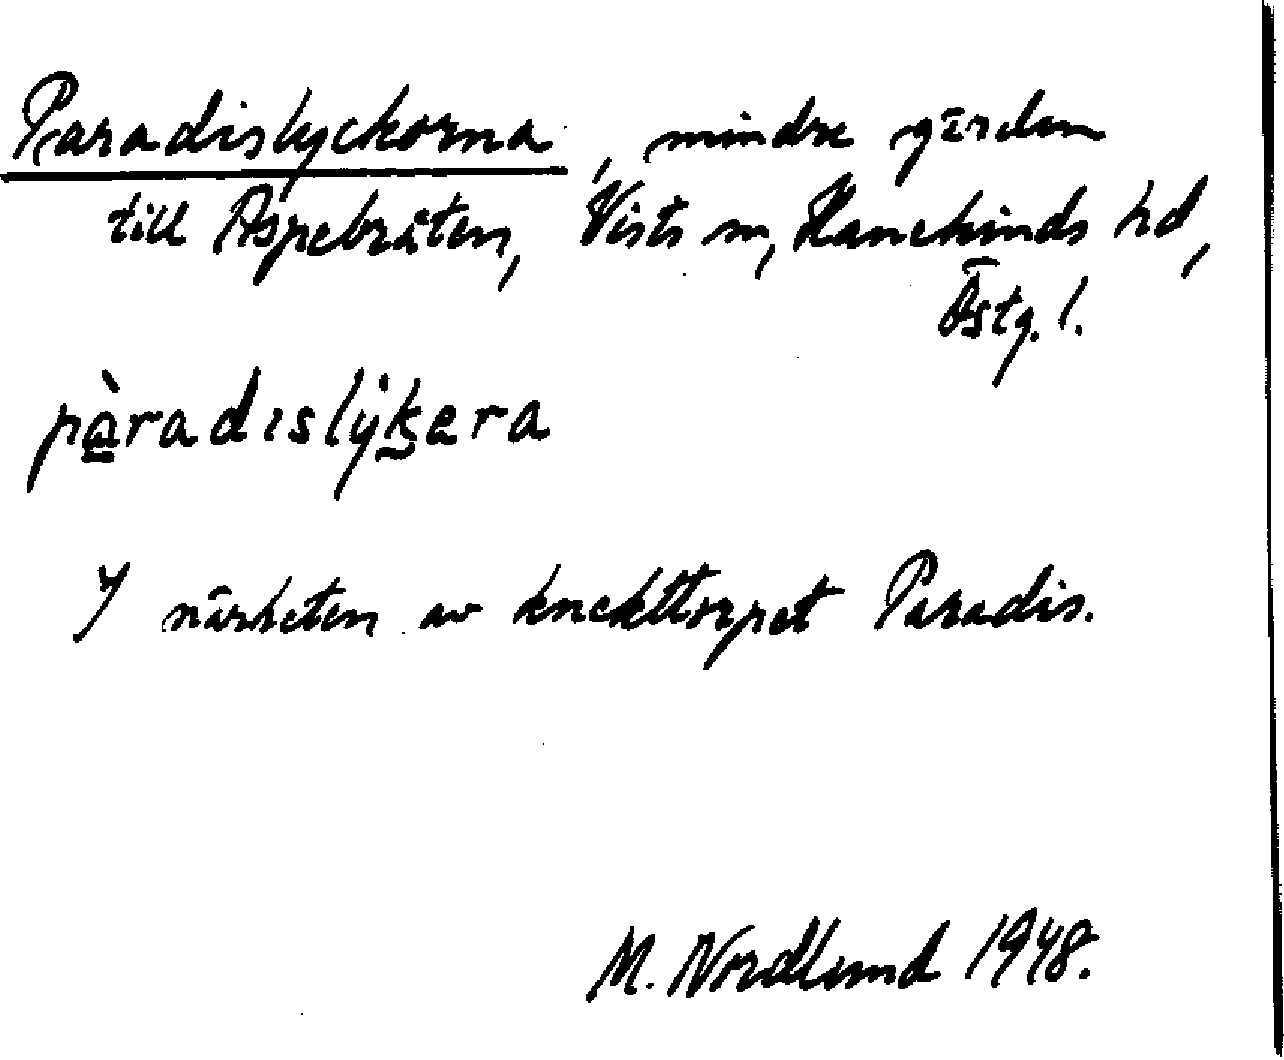 Paradislyckorna, mindre gärden
till Aspebråten, Vists sn, Hanekinds hd,
Östg. l.
pàradislyķera
I närheten av knekttorpet Paradis.
M. Nordlund 1948.